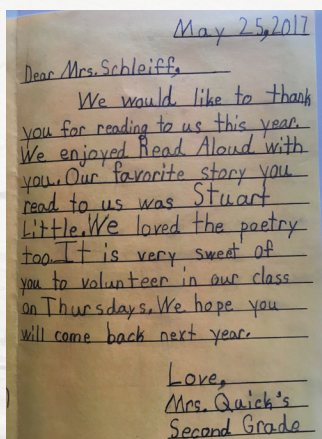 May 25, 2017
Dear Mrs. Schleiff,
We would like to thank
you for reading to us this year.
We enjoyed Read Aloud with
you. Our favorite story you
read to us was Stuart
Little. We loved the poetry
too. It is very sweet of
you to volunteer in our class
on Thursdays. We hope you
will come back next year.
Love,
Mrs. Quick's
Second Grade